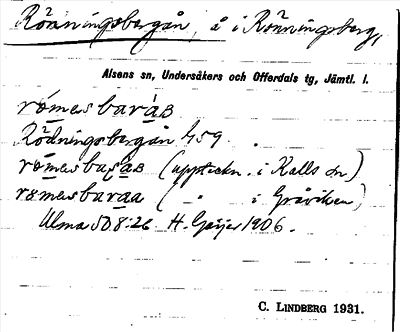 Rönningsbergån, å i Rönningsberg,
Alsens sn, Undersåkers och Offerdals tg, Jämtl. l.
römesbaråɴ
Rödningsbergån 459
römesbaʂaɴ (uppteckn. i Kalls sn)
römesbaraa ( " i Gråviken)
Ulma 508:26 H. Geijer 1906.
C. LINDBERG 1931.